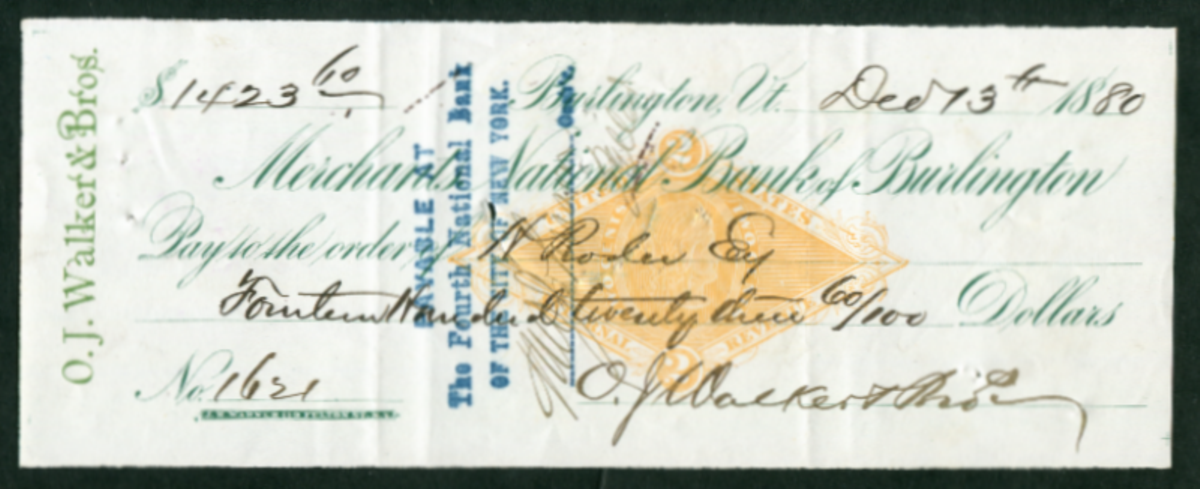 O. J. Walker & Bros.
$ 1423 60
Burlington, Vt. Dec 13th 1880
Merchants National Bank of Burlington
Pay to the order of Esq
Fourteen Hundred twenty three 60/100 Dollars
No. 1621
O. J. Walker & Bros
PAYABLE AT
The Fourth National Bank
OF THE CITY OF NEW YORK.
2
UNITED STATES
INTERNAL REVENUE
2